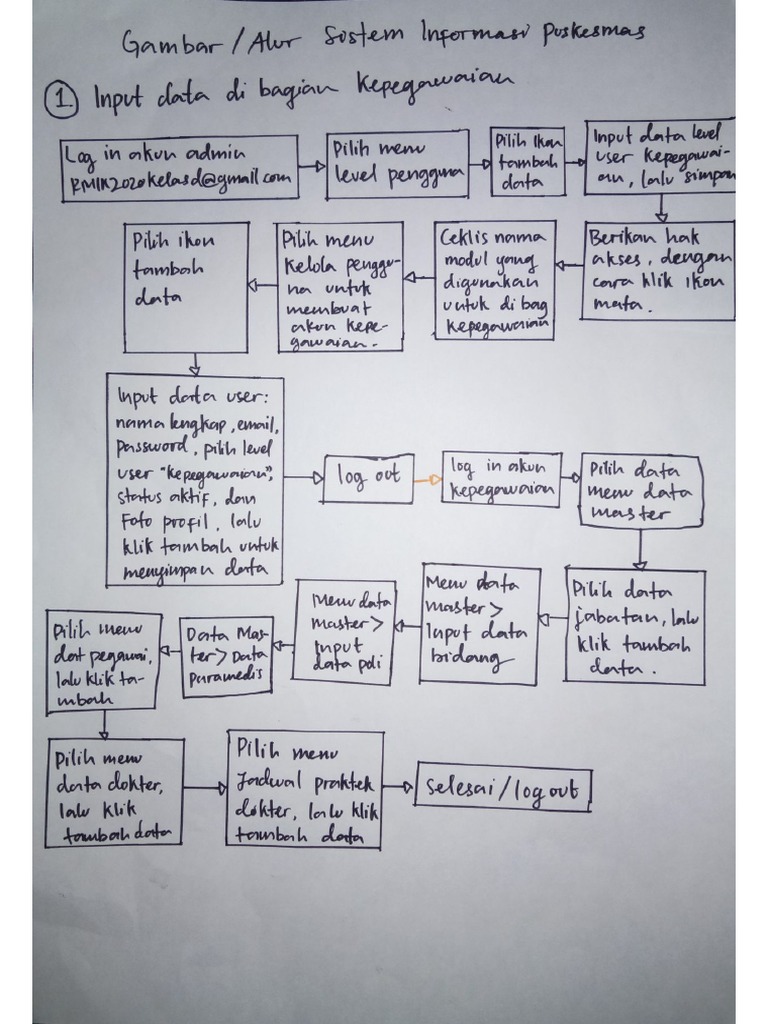 Gambar/Alur Sistem Informasi Puskesmas
① Input data di bagian Kepegawaian
Log in akun admin
RMIK2020kelasd@gmail.com
Pilih menu
level pengguna
Pilih Ikon
tambah
data
Input data level
user kepegawai-
an, lalu simpan
Berikan hak
akses, dengan
cara klik ikon
mata.
Ceklis nama
modul yang
digunakan
untuk di bag
kepegawaian
Pilih menu
Kelola penggu-
na untuk
membuat
akun kepe-
gawaian.
Pilih ikon
tambah
data
Input data user:
nama lengkap, email,
password, pilih level
user "kepegawaian",
status aktif, dan
Foto profil, lalu
klik tambah untuk
menyimpan data
log out
log in akun
kepegawaian
Pilih data
menu data
master
Pilih data
jabatan, lalu
klik tambah
data.
Menu data
master >
Input data
bidang
Menu data
master >
Input
data poli
Data Mas-
ter > Data
Paramedis
Pilih menu
dat pegawai,
lalu klik ta-
mbah
Pilih menu
data dokter,
lalu klik
tambah data
Pilih menu
Jadwal praktek
dokter, lalu klik
tambah data
Selesai/log out